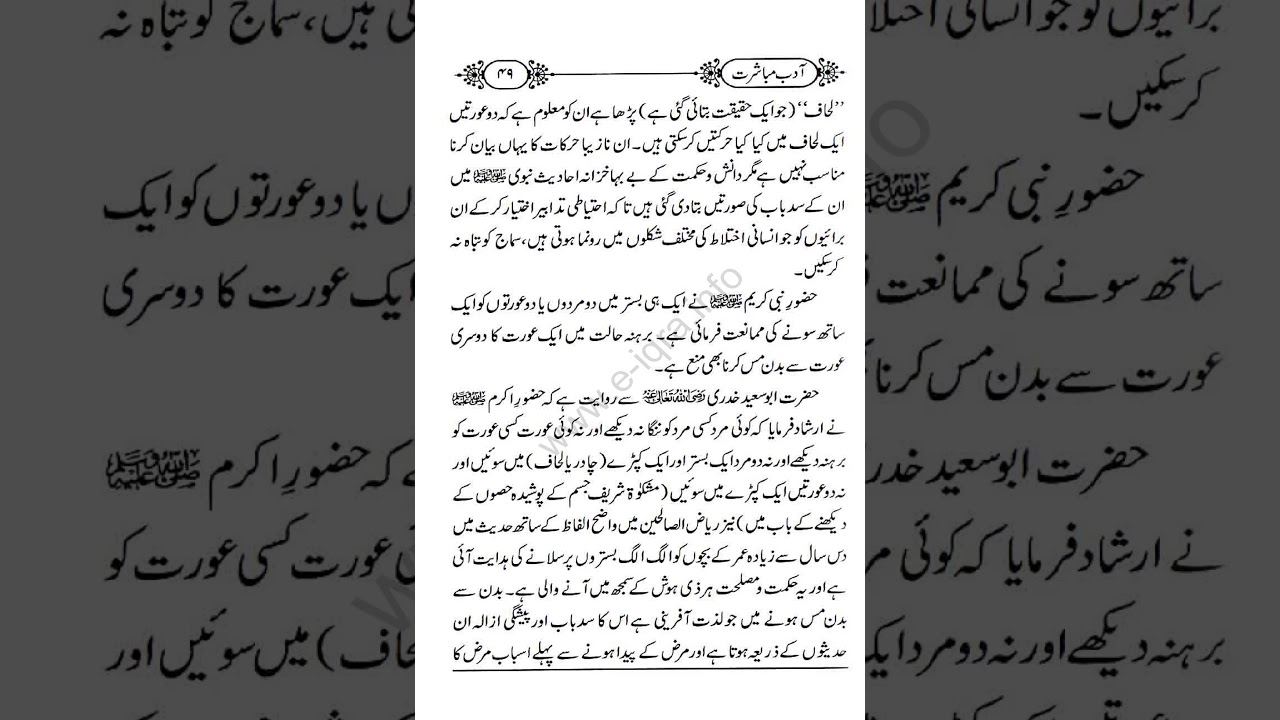 آداب مباشرت
۴۹
’’لحاف‘‘ (جو ایک حقیقت بتائی گئی ہے) پڑھا ہے ان کو معلوم ہے کہ دو عورتیں
ایک لحاف میں کیا کیا حرکتیں کرسکتی ہیں۔ ان نازیبا حرکات کا یہاں بیان کرنا
مناسب نہیں ہے مگر دانش و حکمت کے بے بہا خزانہ احادیث نبوی ﷺ میں
ان کے سدباب کی صورتیں بتا دی گئی ہیں تاکہ احتیاطی تدابیر اختیار کر کے ان
برائیوں کو جو انسانی اختلاط کی مختلف شکلوں میں رونما ہوتی ہیں، سماج کو تباہ نہ
کرسکیں۔
حضورِ نبی کریم ﷺ نے ایک ہی بستر میں دو مردوں یا دو عورتوں کو ایک
ساتھ سونے کی ممانعت فرمائی ہے۔ برہنہ حالت میں ایک عورت کا دوسری
عورت سے بدن مس کرنا بھی منع ہے۔
حضرت ابوسعید خدری رضی اللہ تعالیٰ عنہ سے روایت ہے کہ حضورِ اکرم ﷺ
نے ارشاد فرمایا کہ کوئی مرد کسی مرد کو ننگا نہ دیکھے اور نہ کوئی عورت کسی عورت کو
برہنہ دیکھے اور نہ دو مرد ایک بستر اور ایک کپڑے (چادر یا لحاف) میں سوئیں اور
نہ دو عورتیں ایک کپڑے میں سوئیں (مشکوٰۃ شریف جسم کے پوشیدہ حصوں کے
دیکھنے کے باب میں) نیز ریاض الصالحین میں واضح الفاظ کے ساتھ حدیث میں
دس سال سے زیادہ عمر کے بچوں کو الگ الگ بستروں پر سلانے کی ہدایت آئی
ہے اور یہ حکمت و مصلحت ہر ذی ہوش کے سمجھ میں آنے والی ہے۔ بدن سے
بدن مس ہونے میں جو لذت آفرینی ہے اس کا سدباب اور پیشگی ازالہ ان
حدیثوں کے ذریعہ ہوتا ہے اور مرض کے پیدا ہونے سے پہلے اسباب مرض کا
www.e-iqra.info